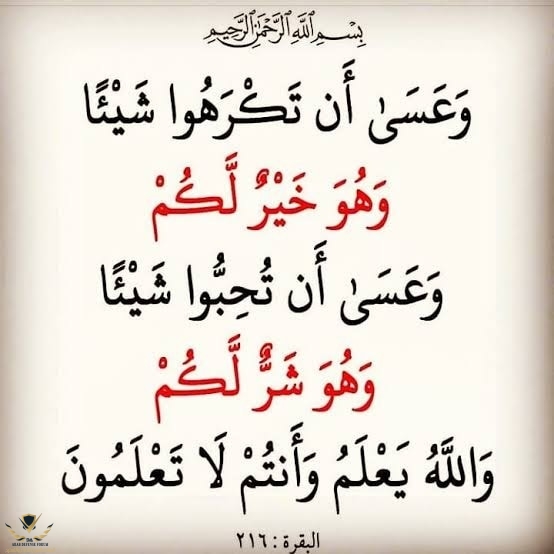 بِسْمِ اللَّهِ الرَّحْمَٰنِ الرَّحِيمِ
وَعَسَىٰ أَن تَكْرَهُوا شَيْئًا
وَهُوَ خَيْرٌ لَّكُمْ
وَعَسَىٰ أَن تُحِبُّوا شَيْئًا
وَهُوَ شَرٌّ لَّكُمْ
وَاللَّهُ يَعْلَمُ وَأَنتُمْ لَا تَعْلَمُونَ
البقرة : ٢١٦